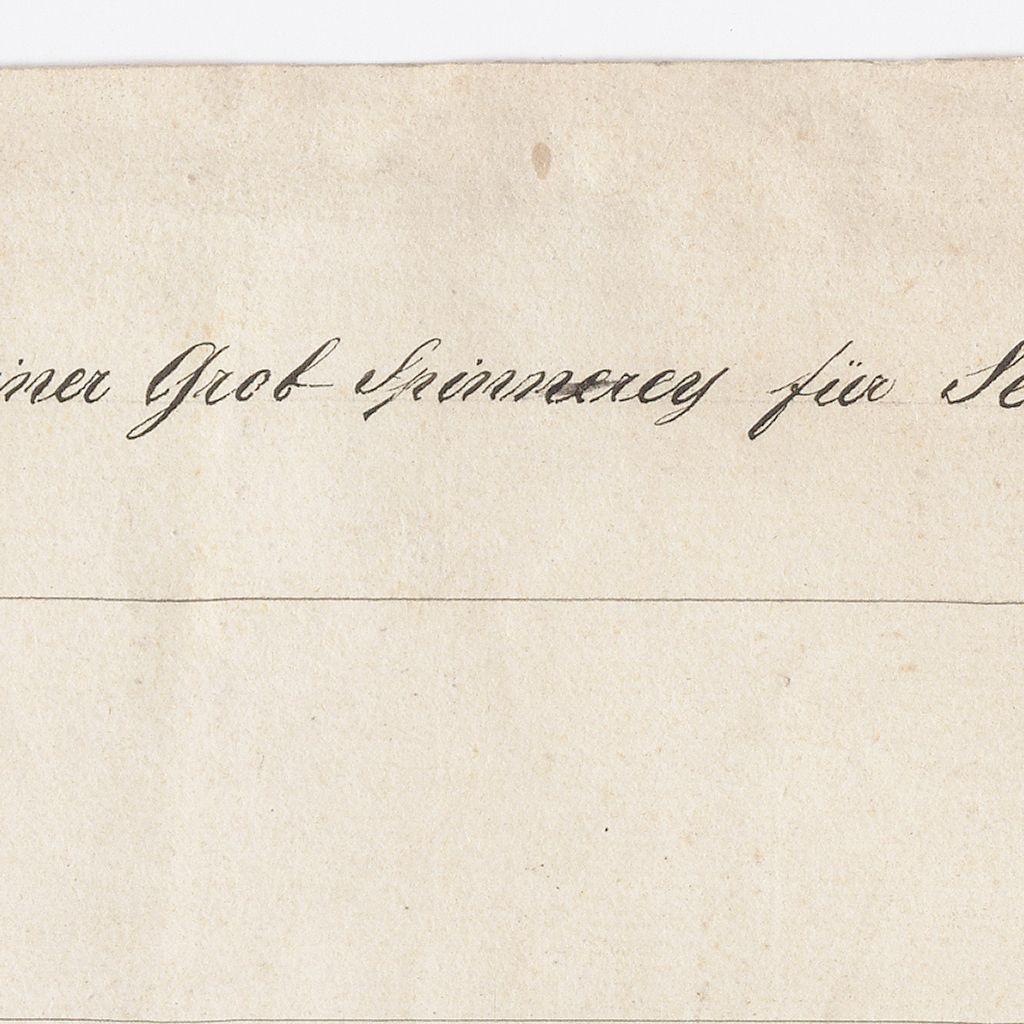 iner Grob Spinnerey für Se